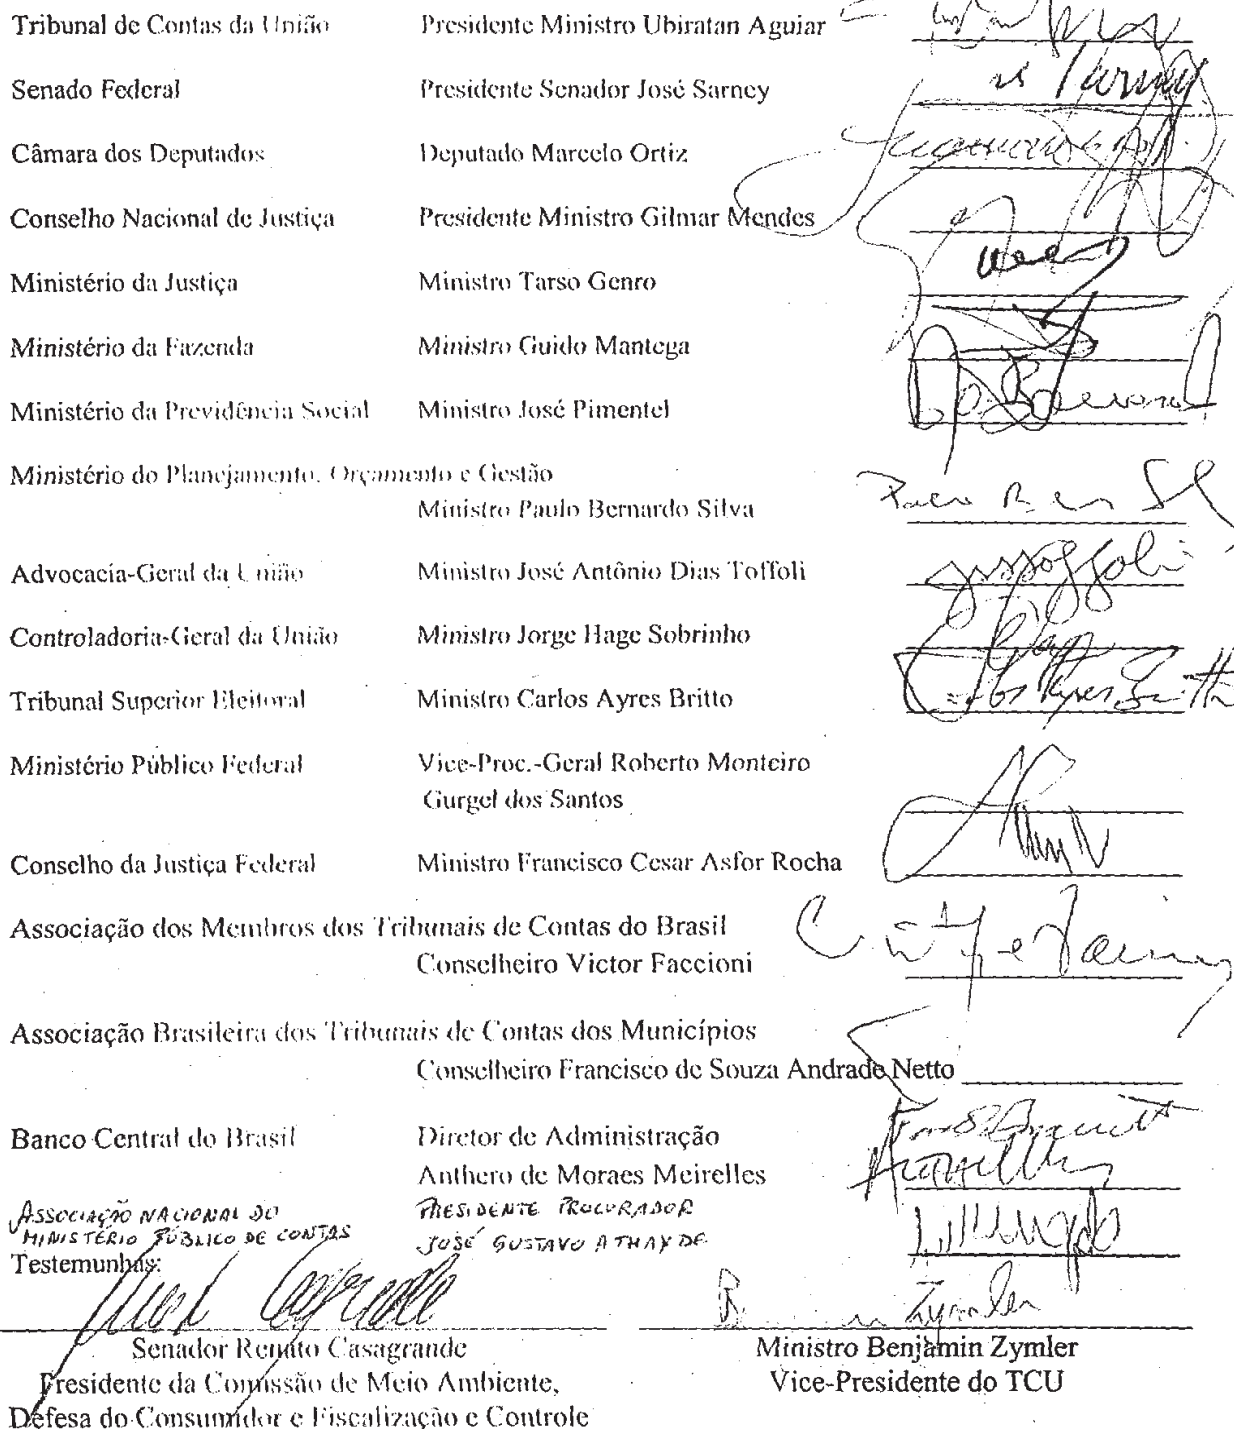 Tribunal de Contas da União Presidente Ministro Ubiratan Aguiar
Senado Federal Presidente Senador José Sarney
Câmara dos Deputados Deputado Marcelo Ortiz
Conselho Nacional de Justiça Presidente Ministro Gilmar Mendes
Ministério da Justiça Ministro Tarso Genro
Ministério da Fazenda Ministro Guido Mantega
Ministério da Previdência Social Ministro José Pimentel
Ministério do Planejamento, Orçamento e Gestão
Ministro Paulo Bernardo Silva
Advocacia-Geral da União Ministro José Antônio Dias Toffoli
Controladoria-Geral da União Ministro Jorge Hage Sobrinho
Tribunal Superior Eleitoral Ministro Carlos Ayres Britto
Ministério Público Federal Vice-Proc.-Geral Roberto Monteiro
Gurgel dos Santos
Conselho da Justiça Federal Ministro Francisco Cesar Asfor Rocha
Associação dos Membros dos Tribunais de Contas do Brasil
Conselheiro Victor Faccioni
Associação Brasileira dos Tribunais de Contas dos Municípios
Conselheiro Francisco de Souza Andrade Netto
Banco Central do Brasil Diretor de Administração
Anthero de Moraes Meirelles
ASSOCIAÇÃO NACIONAL DO PRESIDENTE PROCURADOR
MINISTÉRIO PÚBLICO DE CONTAS JOSÉ GUSTAVO ATHAYDE
Testemunhas:
Senador Renato Casagrande Ministro Benjamin Zymler
Presidente da Comissão de Meio Ambiente, Vice-Presidente do TCU
Defesa do Consumidor e Fiscalização e Controle